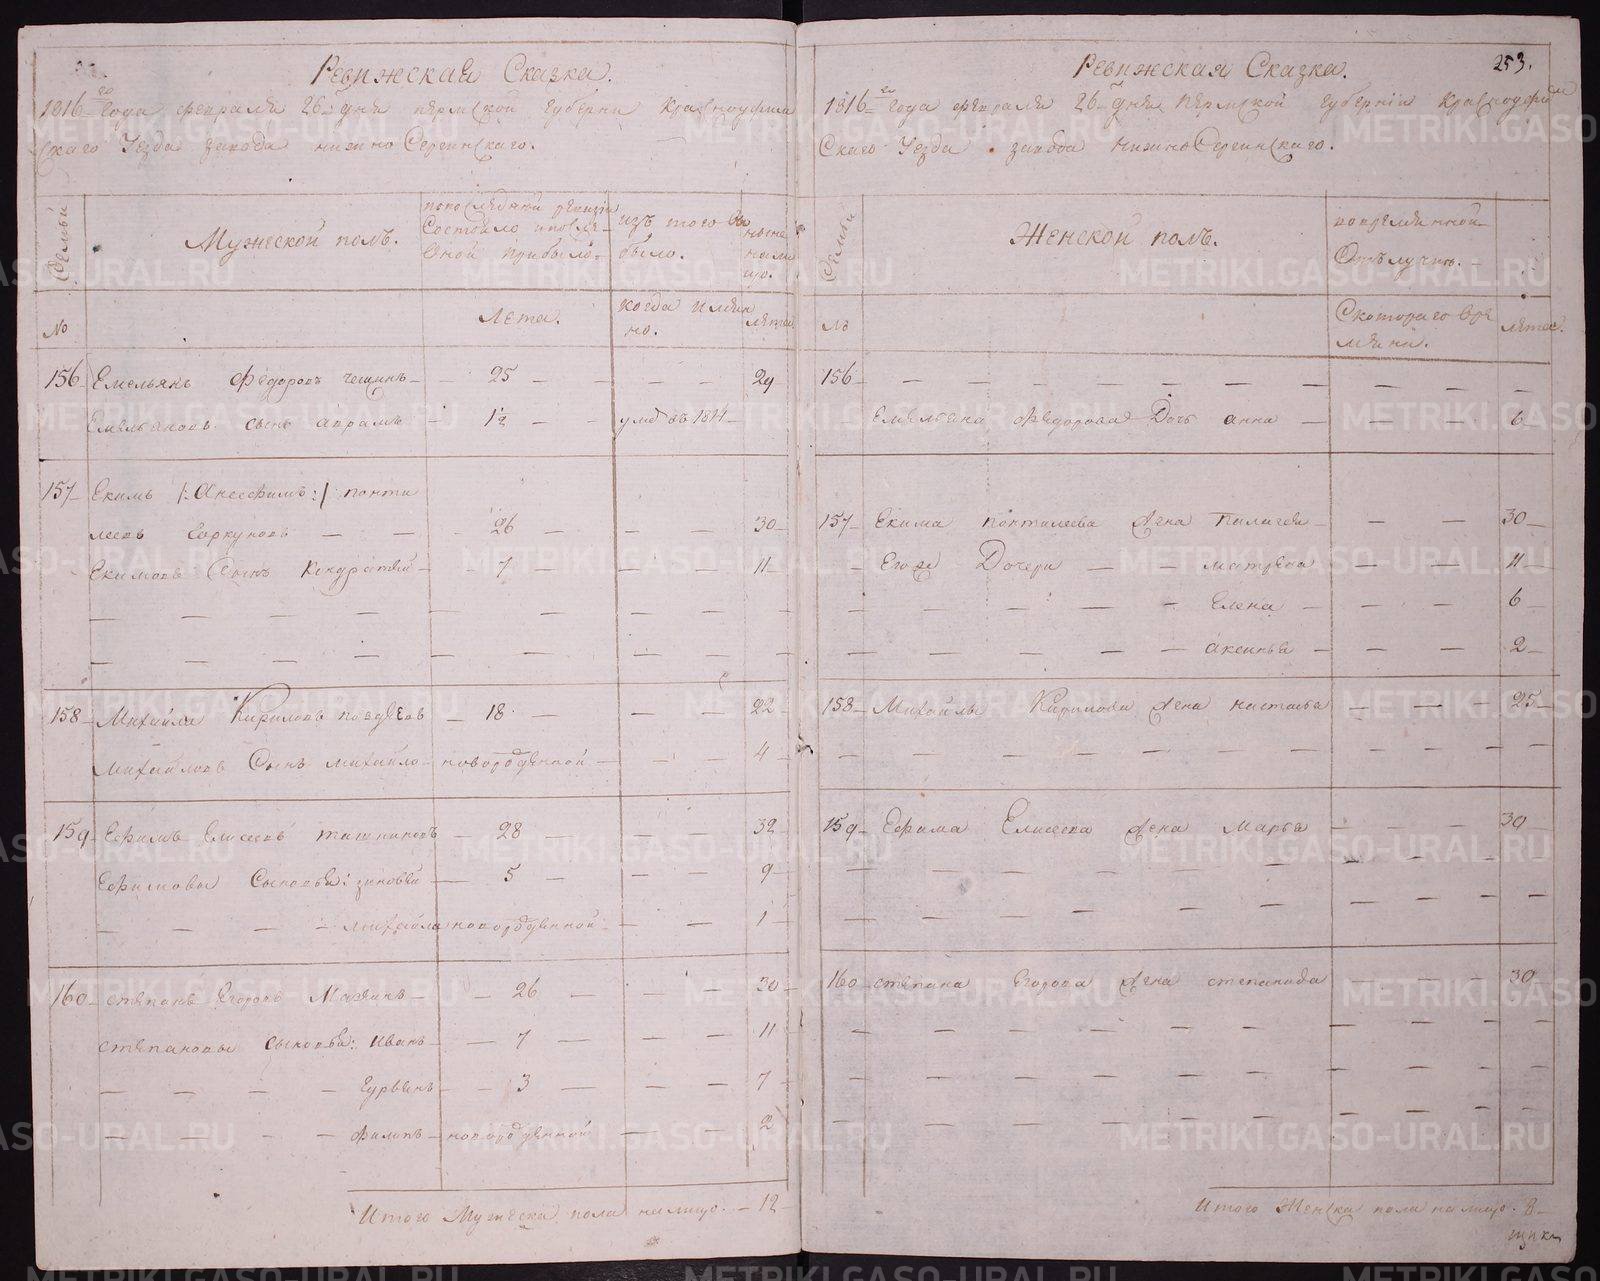 Ревижская Сказка.
1816-го Года февраля 26. дня пермской Губернии Красноуфим
скаго Уезда завода нижно Сергинскаго.
Семьи
Мужеской полъ.
попоследней ревизии
Состояло ипосле
оной прибыло.
изъ того Вы
было.
ныне
нали
цо.
№
Лета.
когда имян
но.
лета
156 Емельянъ Федоровъ чешинъ 25 29
Емельяновъ сынъ абрамъ 12 умр въ 1811
157 Екимъ /: Анесфимъ :/ понти
леевъ Горкуновъ 26 30
Екимовъ Сынъ Кондратей 7 11
158 Михайла Кириловъ поздеевъ 18 22
Михайловъ Сынъ михайло новорожденной 4
159 Ефимъ Елисеевъ ташкиновъ 28 32
Ефимовы Сыновья: зиновей 5 9
михайла новорожденной 1
160 степанъ Егоровъ Мазинъ 26 30
степановы сыновья: иванъ 7 11
Гурьянъ 3 7
филипъ новорожденной 2
Итого Мужеска пола налицо. 12
Ревижская Сказка. 253.
1816-го Года февраля 26. дня Пермской Губернии Красноуфим
Скаго Уезда завода нижно Сергинскаго.
Семьи
Женской полъ.
вовременной
Отълучке.
№
Скотораго вре
мяни.
лета.
156
Емельяна Федорова Дочь анна 6
157 Екима понтилеева Жена Палагея 30
Егоже Дочери матрена 11
Елена 6
аксинья 2
158 Михайлы Кирилова Жена настасья 25
159 Ефима Елисеева Жена Марья 30
160 степана Егорова Жена степанида 30
Итого Женска пола налицо. 8
METRIKI.GASO-URAL.RU